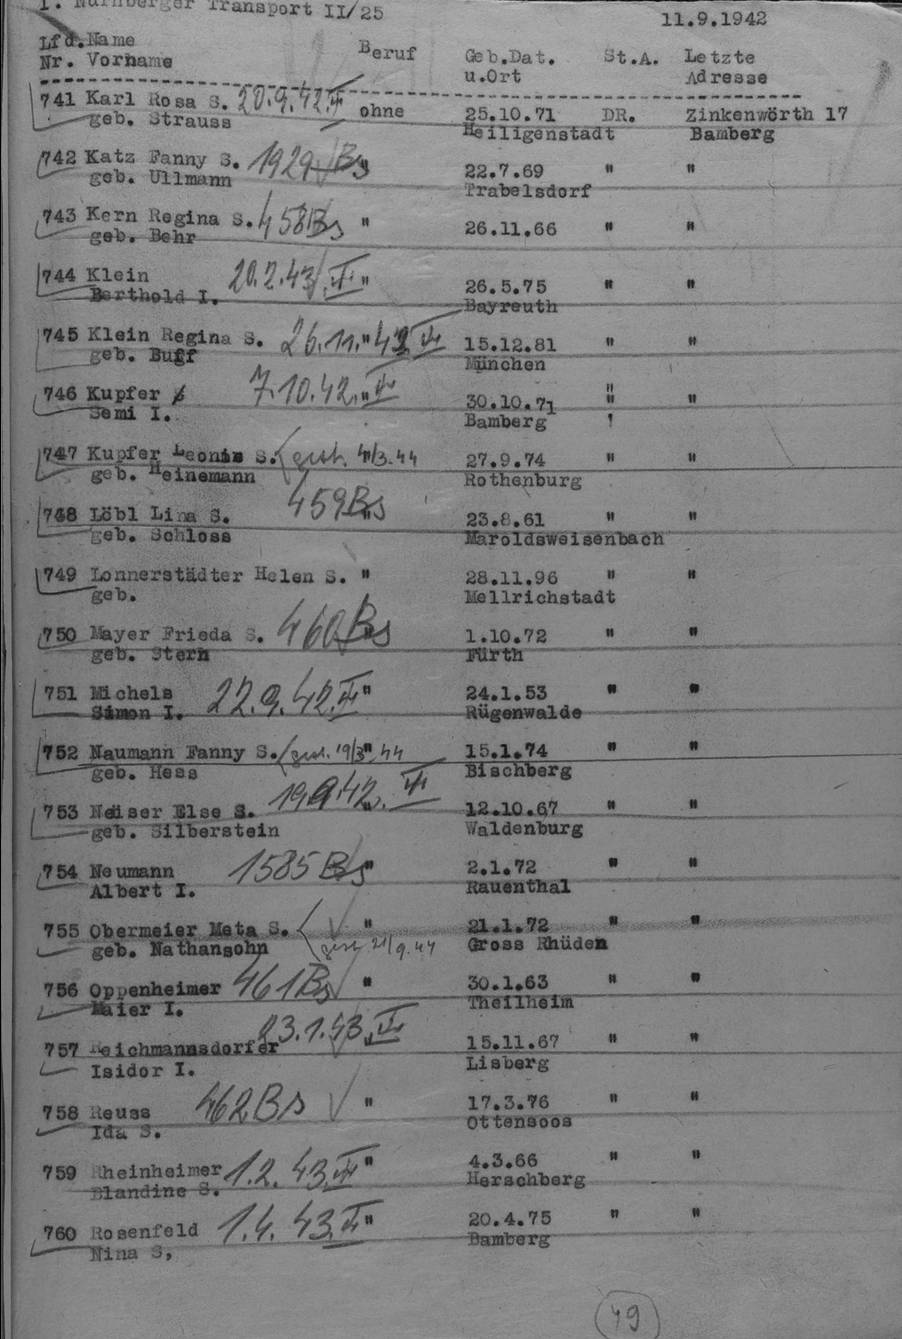 1. Nürnberger Transport II/25
11.9.1942
Lfd. Name Beruf Geb.Dat. St.A. Letzte
Nr. Vorname u.Ort Adresse
741 Karl Rosa S. 20.9.42 ohne 25.10.71 DR. Zinkenwörth 17
geb. Strauss Heiligenstadt Bamberg
742 Katz Fanny S. 1929 Bs " 22.7.69 " "
geb. Ullmann Trabelsdorf
743 Kern Regina S. 458 Bs " 26.11.66 " "
geb. Behr
744 Klein 20.2.43 " 26.5.75 " "
Berthold I. Bayreuth
745 Klein Regina S. 26.11. " 42 15.12.81 " "
geb. Buff München
746 Kupfer 7.10.42 " 30.10.71 " "
Semi I. Bamberg
747 Kupfer Leonie S. gest. 4/3.44 27.9.74 " "
geb. Heinemann Rothenburg
748 Löbl Lina S. 459 Bs " 23.8.61 " "
geb. Schloss Maroldsweisenbach
749 Lonnerstädter Helen S. " 28.11.96 " "
geb. Mellrichstadt
750 Mayer Frieda S. 460 Bs " 1.10.72 " "
geb. Stern Fürth
751 Michels 22.9.42 " 24.1.53 " "
Simon I. Rügenwalde
752 Naumann Fanny S. gest. 19/3 " 44 15.1.74 " "
geb. Hess Bischberg
753 Neuser Else S. 19.9.42 " 12.10.67 " "
geb. Silberstein Waldenburg
754 Neumann 1585 Bs " 2.1.72 " "
Albert I. Rauenthal
755 Obermeier Meta S. " 21.1.72 " "
geb. Nathansohn gest. 21/9.44 Gross Rhüden
756 Oppenheimer 461 Bs " 30.1.63 " "
Maier I. Theilheim
757 Reichmannsdorfer 23.1.43 " 15.11.67 " "
Isidor I. Lisberg
758 Reuss 462 Bs " 17.3.76 " "
Ida S. Ottensoos
759 Rheinheimer 1.2.43 " 4.3.66 " "
Blandine S. Herschberg
760 Rosenfeld 1.4.43 " 20.4.75 " "
Nina S, Bamberg
49